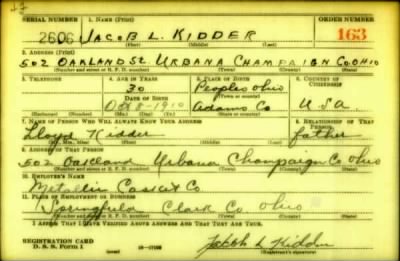 SERIAL NUMBER 1. NAME (Print) ORDER NUMBER
2606 JACOB L. KIDDER 163
(First) (Middle) (Last)
2. ADDRESS (Print)
502 OAKLAND St. URBANA CHAMPAIGN CO. OHIO
(Number and street or R. F. D. number) (Town) (County) (State)
3. TELEPHONE 4. AGE IN YEARS 5. PLACE OF BIRTH 6. COUNTRY OF CITIZENSHIP
30 Peoples Ohio
DATE OF BIRTH (Town or county)
Oct 8-1910 Adams Co USA
(Mo.) (Day) (Yr.) (State or country)
7. NAME OF PERSON WHO WILL ALWAYS KNOW YOUR ADDRESS 8. RELATIONSHIP OF THAT PERSON
Lloyd Kidder father
(Mr., Mrs., Miss) (First) (Middle) (Last)
9. ADDRESS OF THAT PERSON
502 Oakland Urbana Champaign Co Ohio
(Number and street or R. F. D. number) (Town) (County) (State)
10. EMPLOYER'S NAME
Metallic Casket Co
11. PLACE OF EMPLOYMENT OR BUSINESS
Springfield Clark Co Ohio
(Number and street or R. F. D. number) (Town) (County) (State)
I AFFIRM THAT I HAVE VERIFIED ABOVE ANSWERS AND THAT THEY ARE TRUE.
REGISTRATION CARD
D. S. S. Form 1 Jacob L Kidder